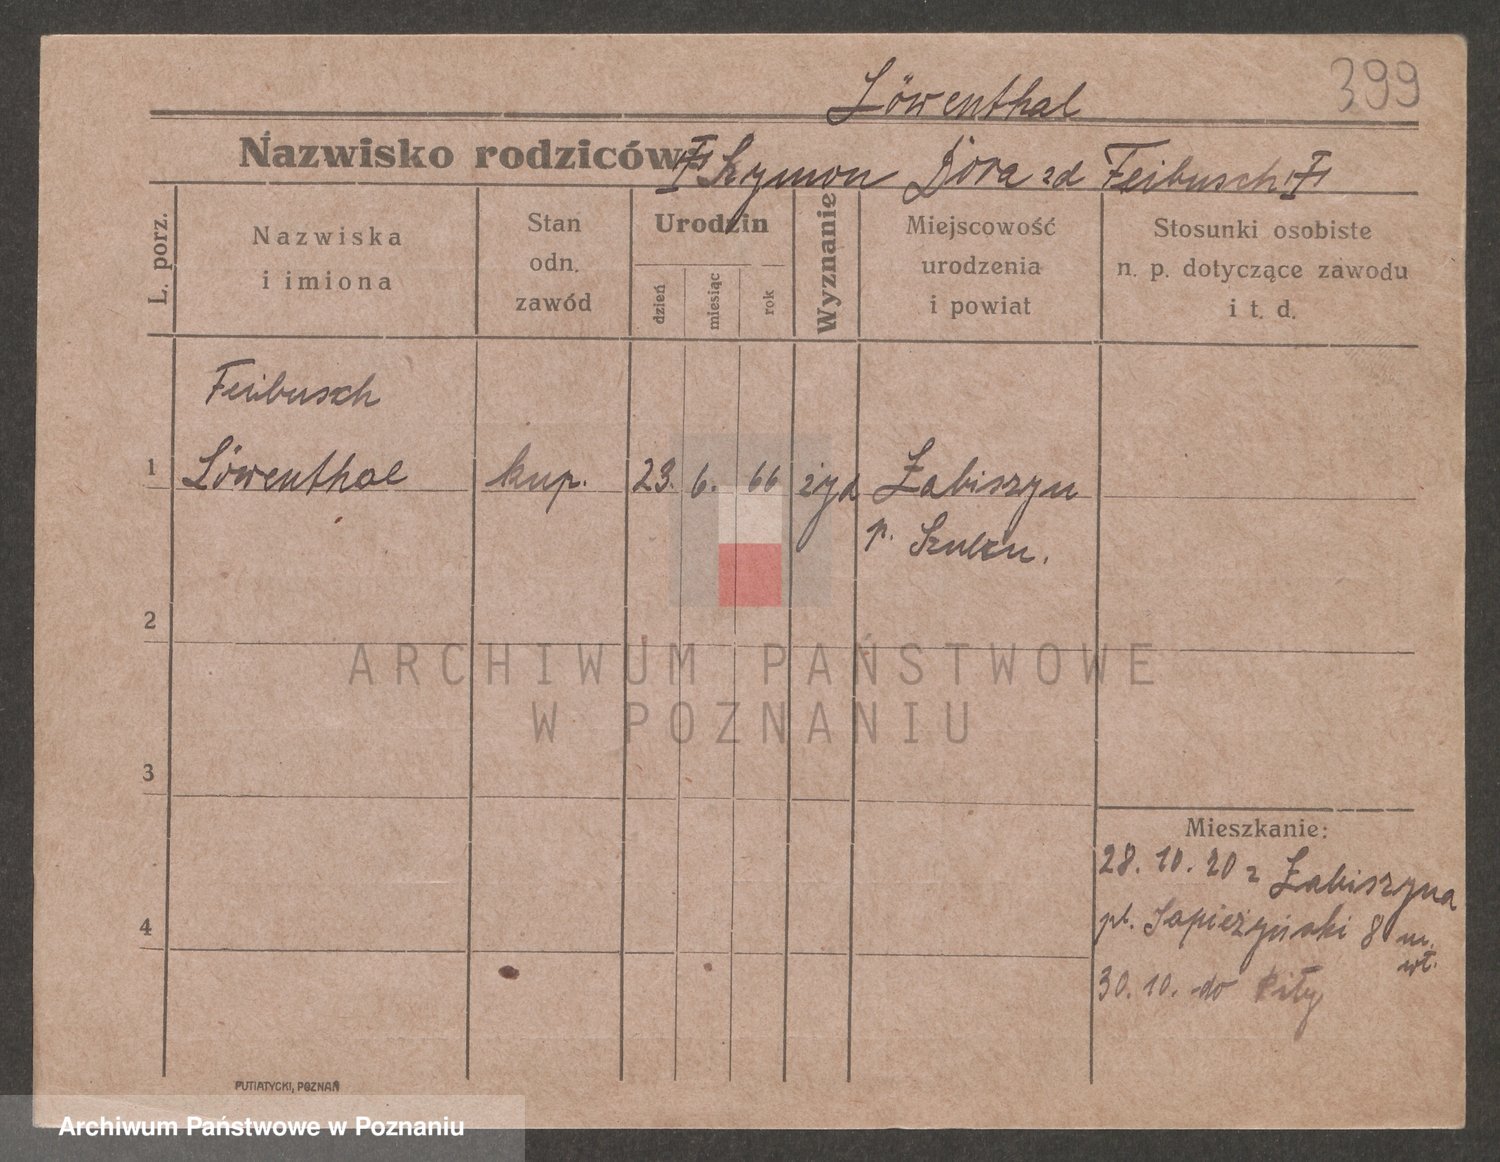 399
Löwenthal
Nazwisko rodziców Szymon Dora zd Feibusch
L. porz.
Nazwiska
i imiona
Stan
odn.
zawód
Urodzin
dzień
miesiąc
rok
Wyznanie
Miejscowość
urodzenia
i powiat
Stosunki osobiste
n. p. dotyczące zawodu
i t. d.
Feibusch
1 Löwenthal kup. 23. 6. 66 żyd Łabiszyn
p. Szubin.
2
3
4
Mieszkanie:
28. 10. 20 z Łabiszyna
pl. Sapieżyński 8 m.
wł.
30. 10. do Piły
PUTIATYCKI, POZNAŃ
ARCHIWUM PAŃSTWOWE
W POZNANIU
Archiwum Państwowe w Poznaniu